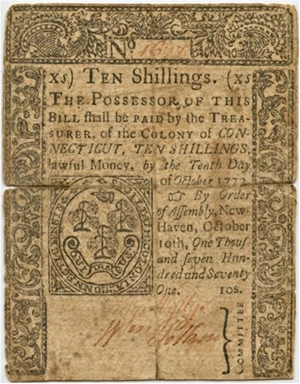 No
xs) TEN Shillings. (xs
THE POSSESSOR OF THIS
BILL shall be PAID by the TREA-
SURER, of the COLONY of CON-
NECTICUT, TEN SHILLINGS,
lawful Money, by the Tenth Day
of October 1773
By Order
of Assembly, New-
Haven, October
10th, One Thou
and seven Hun-
dred and Seventy
One. 10s.
COMMITTEE